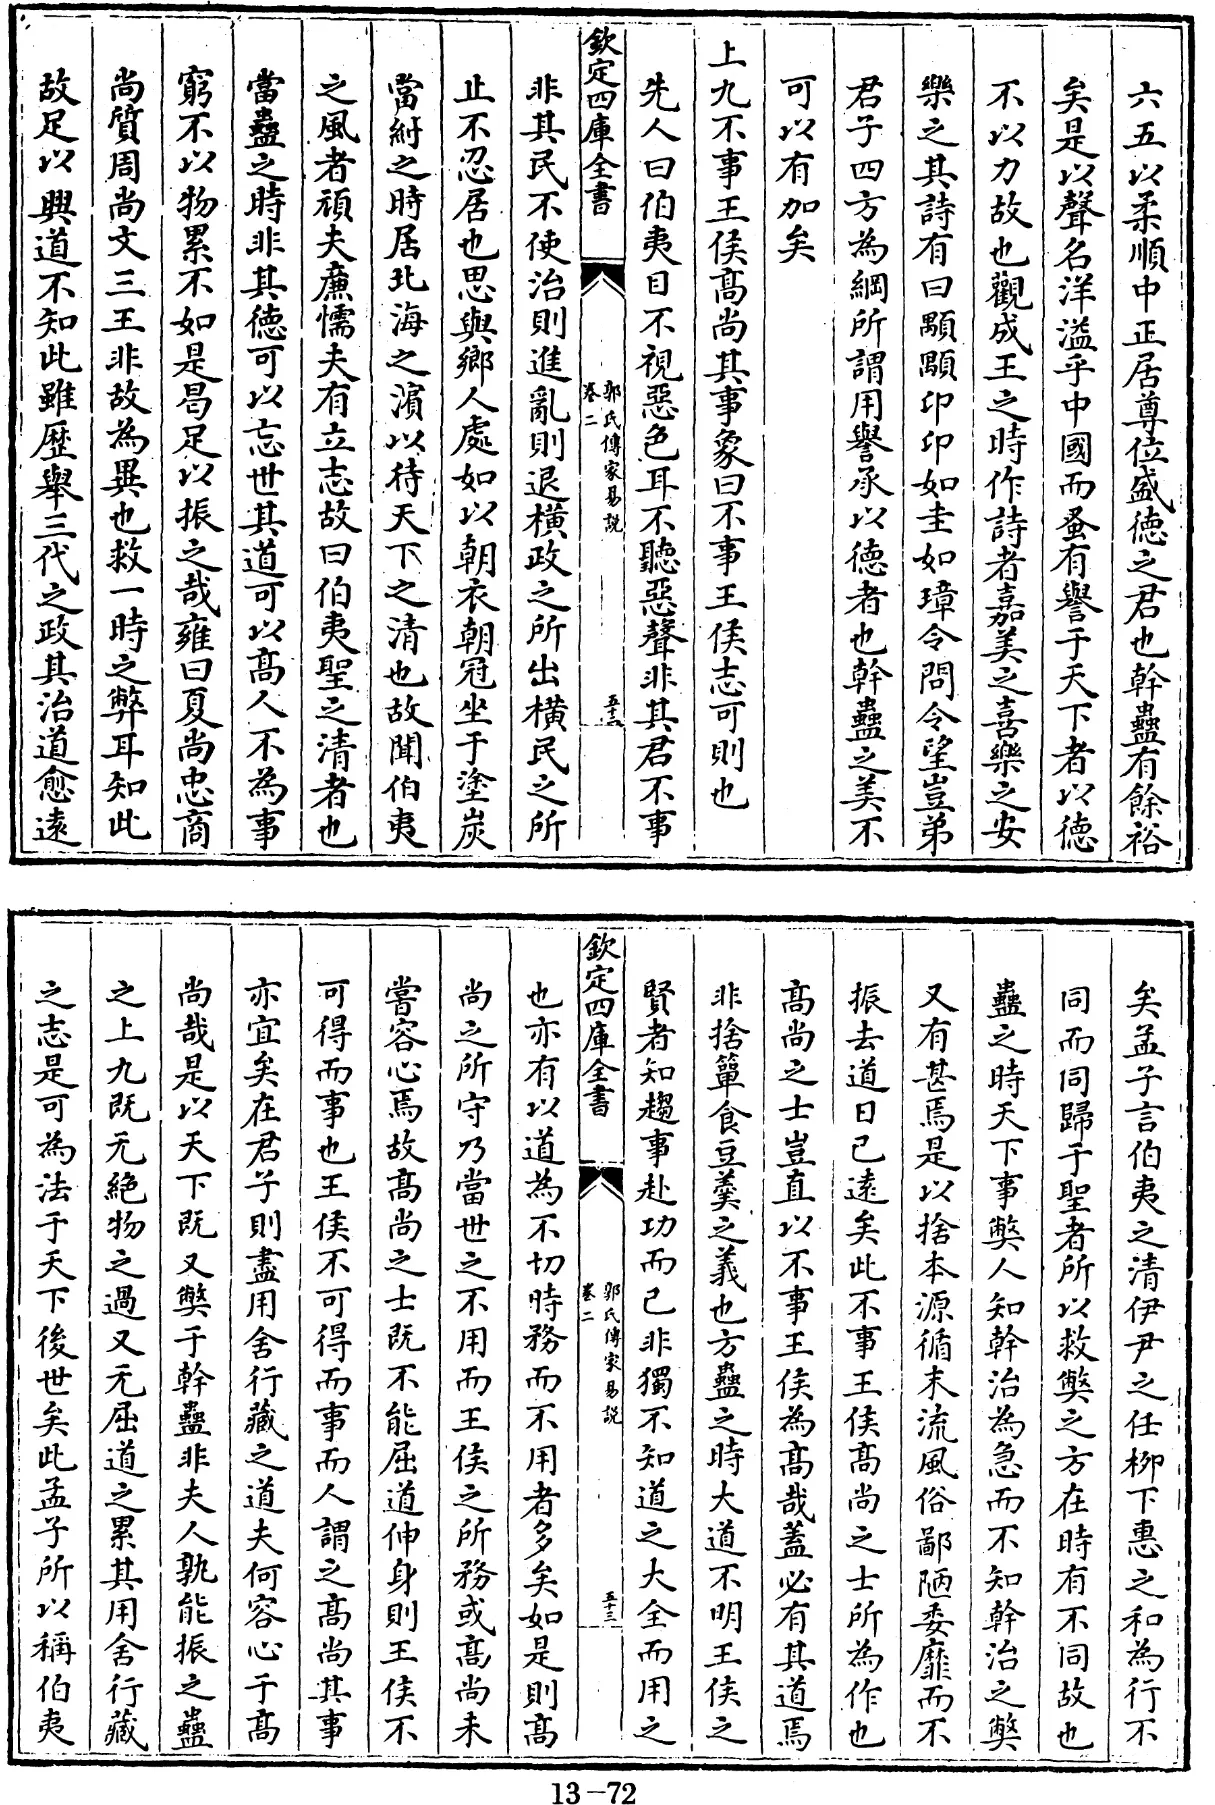 六五以柔順中正居尊位盛德之君也幹蠱有餘裕
矣是以聲名洋溢乎中國而蚤有譽于天下者以德
不以力故也觀成王之時作詩者嘉美之喜樂之安
樂之其詩有曰顒顒卬卬如圭如璋令問令望豈弟
君子四方為綱所謂用譽承以德者也幹蠱之美不
可以有加矣
上九不事王侯高尚其事象曰不事王侯志可則也
先人曰伯夷目不視惡色耳不聽惡聲非其君不事
欽定四庫全書
郭氏傳家易説
卷二
五十二
非其民不使治則進亂則退橫政之所出橫民之所
止不忍居也思與鄉人處如以朝衣朝冠坐于塗炭
當紂之時居北海之濵以待天下之清也故聞伯夷
之風者頑夫廉懦夫有立志故曰伯夷聖之清者也
當蠱之時非其德可以忘世其道可以高人不為事
窮不以物累不如是曷足以振之哉雍曰夏尚忠商
尚質周尚文三王非故為異也救一時之弊耳知此
故足以興道不知此雖歴舉三代之政其治道愈逺
矣孟子言伯夷之清伊尹之任柳下惠之和為行不
同而同歸于聖者所以救弊之方在時有不同故也
蠱之時天下事弊人知幹治為急而不知幹治之弊
又有甚焉是以捨本源循末流風俗鄙陋委靡而不
振去道日已逺矣此不事王侯高尚之士所為作也
高尚之士豈直以不事王侯為高哉蓋必有其道焉
非捨簞食豆羮之義也方蠱之時大道不明王侯之
賢者知趨事赴功而已非獨不知道之大全而用之
欽定四庫全書
郭氏傳家易説
卷二
五十三
也亦有以道為不切時務而不用者多矣如是則高
尚之所守乃當世之不用而王侯之所務或高尚未
嘗容心焉故高尚之士既不能屈道伸身則王侯不
可得而事也王侯不可得而事而人謂之高尚其事
亦宜矣在君子則盡用舍行藏之道夫何容心于高
尚哉是以天下既又弊于幹蠱非夫人孰能振之蠱
之上九既无絶物之過又无屈道之累其用舍行藏
之志是可為法于天下後世矣此孟子所以稱伯夷
13-72